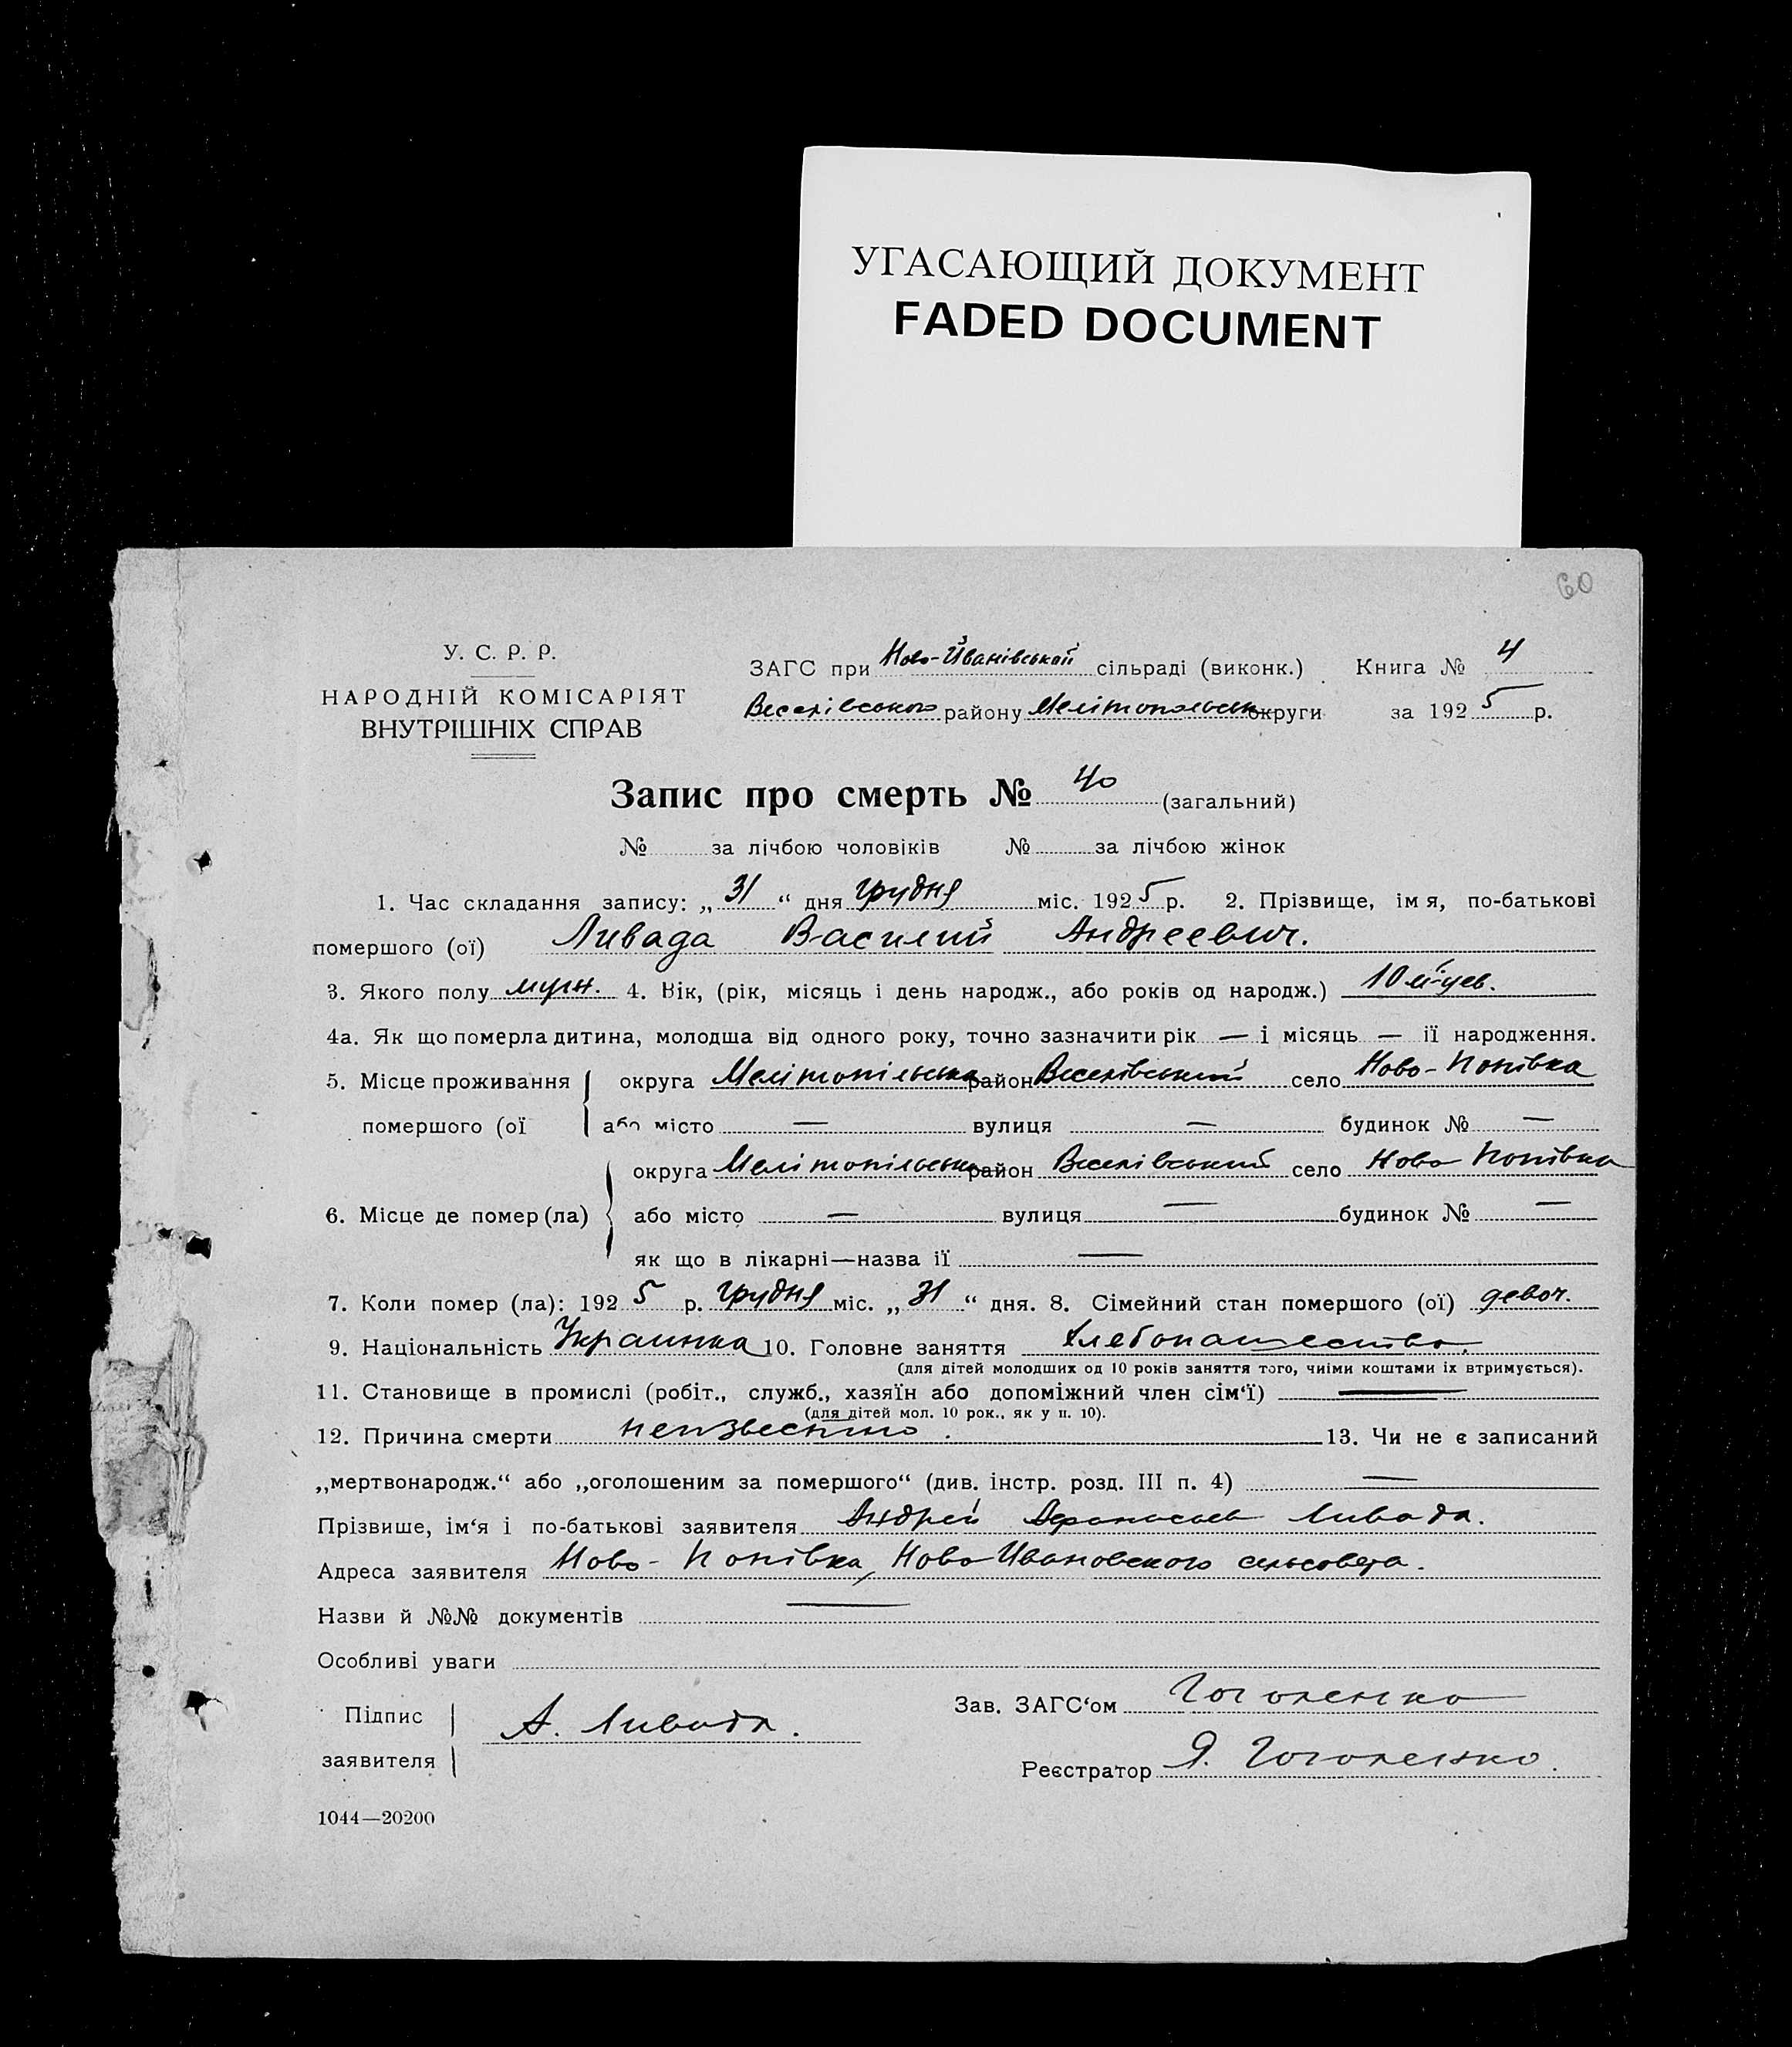 УГАСАЮЩИЙ ДОКУМЕНТ
FADED DOCUMENT
60
У. С. Р. Р.
НАРОДНІЙ КОМІСАРІЯТ
ВНУТРІШНІХ СПРАВ
ЗАГС при Ново-Йванівській сільраді (виконк.) Книга № 4
Веселівського району Мелітопольськ округи за 1925 р.
Запис про смерть № 40 (загальний)
№ за лічбою чоловіків № за лічбою жінок
1. Час складання запису: „31“ дня грудня міс. 1925 р. 2. Прізвище, імя, по-батькові
помершого (ої) Ливада Василий Андреевич.
3. Якого полу муж. 4. Вік, (рік, місяць і день народж., або років од народж.) 10
4а. Як що померла дитина, молодша від одного року, точно зазначити рік — і місяць — ії народження.
5. Місце проживання округа Мелітопільська район Веселівський село Ново-Попівка
помершого (ої або місто — вулиця — будинок № —
округа Мелітопільська район Веселівський село Ново Попівка
6. Місце де помер (ла) або місто — вулиця — будинок № —
як що в лікарні—назва ії —
7. Коли помер (ла): 1925 р. грудня міс. „31“ дня. 8. Сімейний стан помершого (ої)
9. Національність Украинка 10. Головне заняття хлебопашество.
(для дітей молодших од 10 років заняття того, чиїми коштами їх втримується).
11. Становище в промислі (робіт., служб., хазяїн або допоміжний член сім‘ї) —
(для дітей мол. 10 рок., як у п. 10).
12. Причина смерти неизвестно. 13. Чи не є записаний
„мертвонародж.“ або „оголошеним за помершого“ (див. інстр. розд. III п. 4) —
Прізвише, ім‘я і по-батькові заявителя Андрей Афанасьев Ливада.
Адреса заявителя Ново-Попівка, Ново Ивановского сельсовета.
Назви й №№ документів —
Особливі уваги
Підпис
заявителя А. Ливада.
Зав. ЗАГС‘ом Гоголенко
Реєстратор Я. Гоголенко.
1044—20200